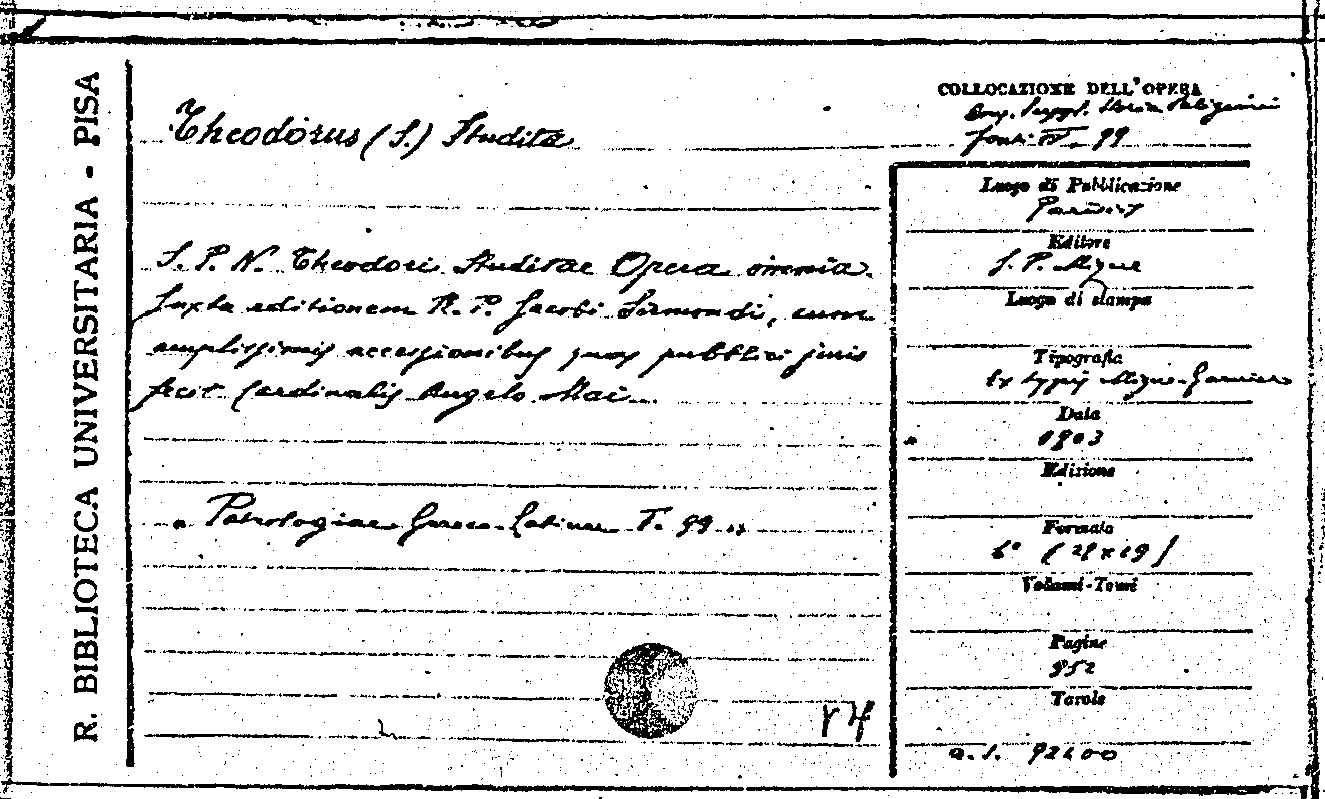 R. BIBLIOTECA UNIVERSITARIA - PISA
Theodorus (S.) Studita
S. P. N. Theodori Studitae Opera omnia.
Juxta editionem R. P. Jacobi Sirmondi,
amplissimis accessionibus quas publici juris
fecit Cardinalis Angelo Mai
" Patrologiae Graeco-Latinae T. 99 "
COLLOCAZIONE DELL'OPERA
Storia Religioni
fonti 99
Luogo di Pubblicazione
Parisiis
Editore
J. P. Migne
Luogo di stampa
Tipografia
Ex typis Migne-Garnier
Data
1903
Edizione
Formato
(28 x 19)
Volumi-Tomi
Pagine
952
Tavole